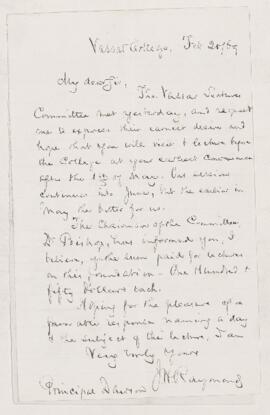 Vassar College, Feb 20/69
My dear Sir,
The Vassar Lecture
Committee met yesterday, and request
me to express their earnest desire and
hope that you will visit & lecture before
the College at your earliest convenience
after the 1st of May. Our session
continues into June, but the earlier in
May the better for us.
The Chairman of the Committee,
Dr Bishop, has informed you, I
believe, of the sum paid for lectures
on this foundation - One Hundred &
fifty Dollars each.
Hoping for the pleasure of a
favorable response naming a day
& the subject of the lecture, I am
Very truly yours
J H Raymond
Principal Dawson